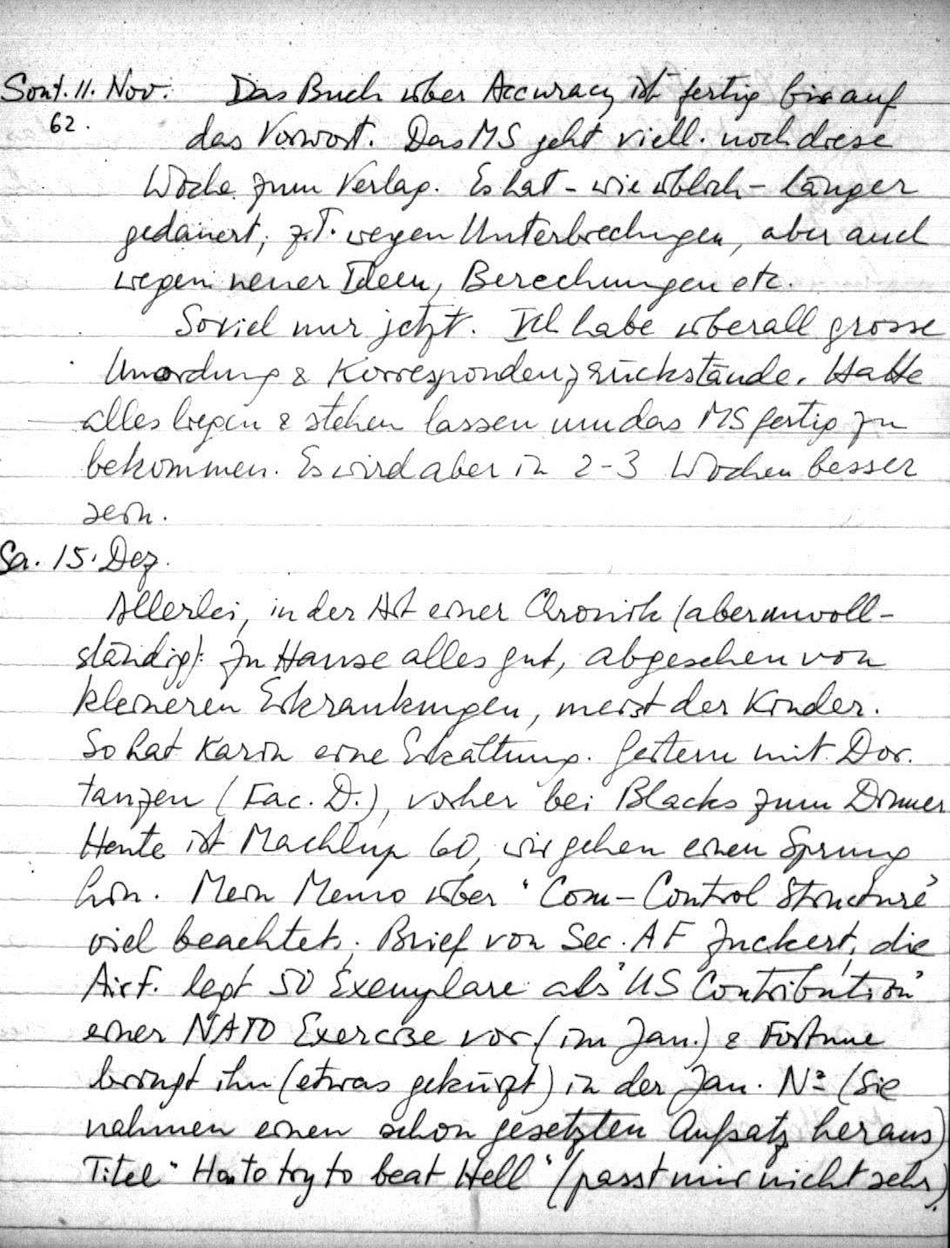 Sont. 11. Nov. Das Buch über Accuracy ist fertig bis auf
62. das Vorwort. Das MS geht viell. noch diese
Woche zum Verlag. Es hat - wie üblich - länger
gedauert, z.T. wegen Unterbrechungen, aber auch
wegen neuer Ideen, Berechnungen etc.
Soviel nur jetzt. Ich habe überall grosse
Unordnung & Korrespondenzrückstände. Hatte
alles liegen & stehen lassen um das MS fertig zu
bekommen. Es wird aber in 2-3 Wochen besser
sein.
Sa. 15. Dez.
Allerlei, in der Art einer Chronik (aber unvoll-
ständig): Zu Hause alles gut, abgesehen von
kleineren Erkrankungen, meist der Kinder.
So hat Karin eine Erkältung. Gestern mit Dor.
tanzen (Fac. D.), vorher bei Blacks zum Dinner
Heute ist Machlup 60, wir gehen einen Sprung
hin. Mein Memo über "Com-Control Structure"
viel beachtet. Brief von Sec. AF Zuckert, die
AirF. legt 50 Exemplare als "US Contribution"
einer NATO Exercise vor (im Jan.) & Fortune
bringt ihn (etwas gekürzt) in der Jan. No (Sie
nahmen einen schon gesetzten Aufsatz heraus)
Titel "How to try to beat Hell" (passt mir nicht sehr).